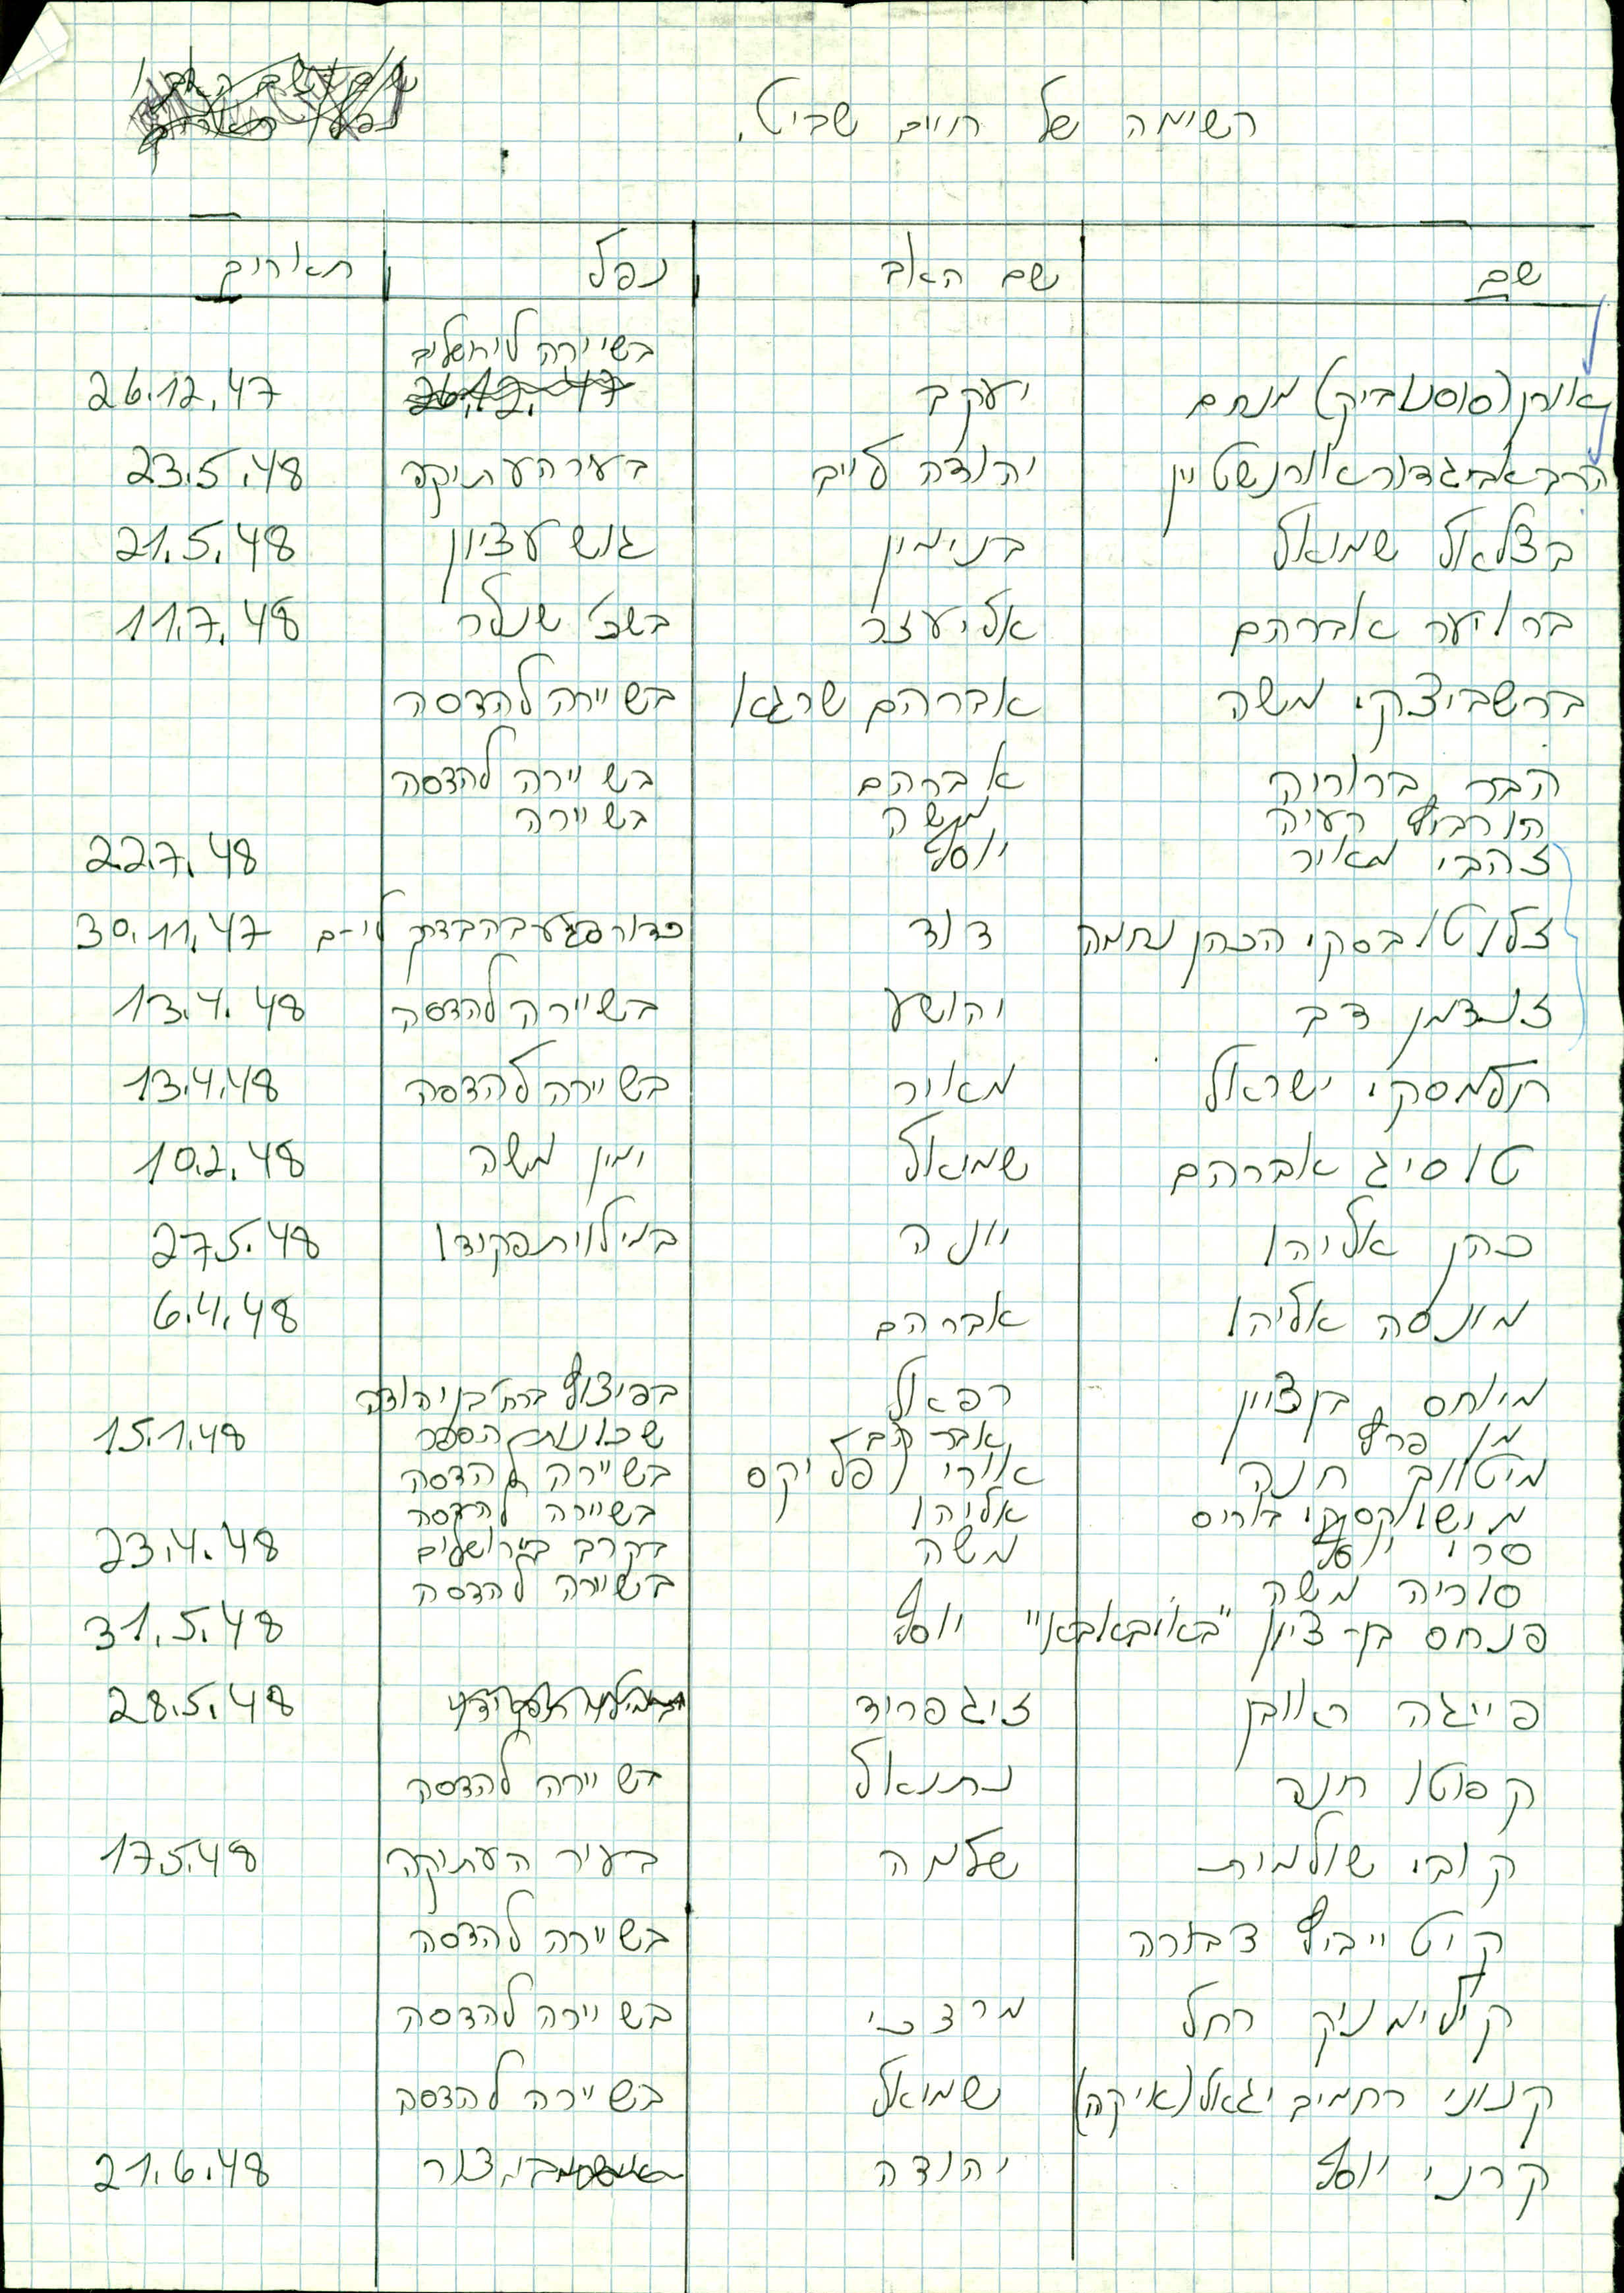 רשימה של חיים שביט.
שם שם האב נפל תאריך
בשיירה לירושלים
אורן (סוסנוביק) מנחם יעקב 26.12.47 26.12.47
הרב אביגדור אורנשטיין יהודה לייב בעיר העתיקה 23.5.48
בצלאל שמואל בנימין גוש עציון 21.5.48
בר יער אברהם אליעזר בשכ' שנלר 11.7.48
ברשביצקי משה אברהם שרגא בשיירה להדסה
הבר ברוריה אברהם בשיירה להדסה
הורביץ רעיה משה בשיירה
זהבי מאיר יוסף 22.7.48
זלוטובסקי הכהן נחמה דוד כדור פגע בה בדרך לי-ם 30.11.47
זנדמן דב יהושע בשיירה להדסה 13.4.48
חלמסקי ישראל מאיר בשיירה להדסה 13.4.48
טוסיג אברהם שמואל ימין משה 10.2.48
כהן אליהו יונה במילוי תפקידו 27.5.48
מונסה אליהו אברהם 6.4.48
מיוחס בן ציון רפאל בפיצוץ ברח' בן יהודה
מן פרץ שכונות הספר 15.1.48
מיטווך חנה אורי פליקס בשיירה להדסה
בוריס אליהו בשיירה להדסה
סרי יוסף משה בקרב בירושלים 23.4.48
סוריה משה בשיירה להדסה
פנחס בן-ציון "באובאבאו" יוסף 31.5.48
פייגה ראובן זיגפריד במילוי תפקידו 28.5.48
קפוטו חנה נתנאל בשיירה להדסה
קובי שולמית שלמה בעיר העתיקה 17.5.48
קיטייביץ דבורה בשיירה להדסה
קילימניק רחל מרדכי בשיירה להדסה
קנוני רחמים יגאל (איקה) שמואל בשיירה להדסה
קרני יוסף יהודה צור 21.6.48